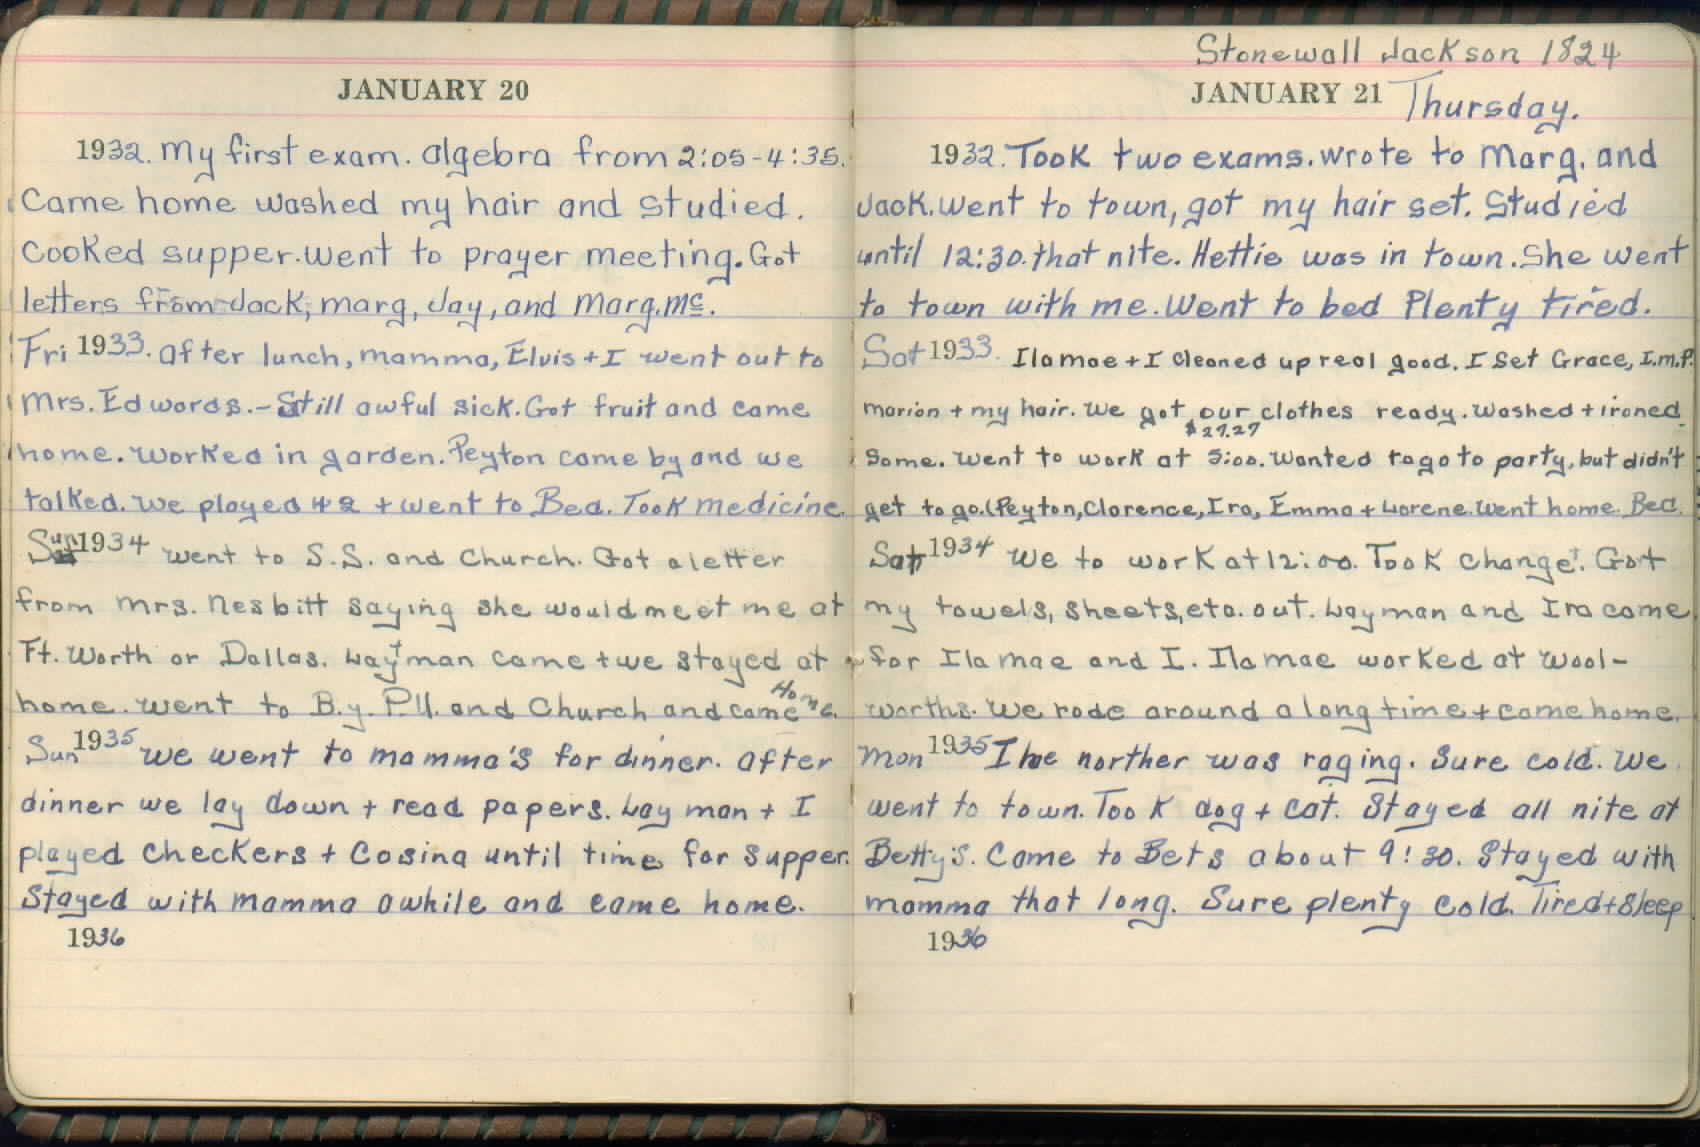 JANUARY 20
1932. My first exam. algebra from 2:05-4:35.
Came home washed my hair and studied.
Cooked supper. Went to prayer meeting. Got
letters from Jack, marg, Jay, and Marg. Mc.
Fri 1933. after lunch, mamma, Elvis + I went out to
Mrs. Edwards. - Still awful sick. Got fruit and came
home. Worked in garden. Peyton came by and we
talked. We played 42 + went to Bed. Took medicine.
Sun 1934 Went to S.S. and Church. Got a letter
from Mrs. Nesbitt saying she would meet me at
Ft. Worth or Dallas. Layman came + we stayed at
home. Went to B.Y.P.U. and Church and came Home.
Sun 1935 We went to mamma's for dinner. After
dinner we lay down + read papers. Layman + I
played checkers + Cosina until time for supper.
Stayed with mamma awhile and came home.
1936
Stonewall Jackson 1824
JANUARY 21 Thursday.
1932. Took two exams. wrote to Marg. and
Jack. Went to town, got my hair set. Studied
until 12:30 that nite. Hettie was in town. She went
to town with me. Went to bed Plenty tired.
Sat 1933. Ilamae + I cleaned up real good. I set Grace, I.M.P.
Marion + my hair. We got our clothes ready. Washed + ironed
$27.27
some. Went to work at 5:00. Wanted to go to party, but didn't
get to go. (Peyton, Clarence, Ira, Emma + Lorene. Went home. Bed.
Sat 1934 We to work at 12:00. Took change. Got
my towels, sheets, etc. out. Layman and Ira came
for Ila mae and I. Ila mae worked at Wool-
worths. We rode around a long time + came home.
Mon 1935 The norther was raging. Sure cold. We
went to town. Took dog + cat. Stayed all nite at
Betty's. Came to Bets about 9:30. Stayed with
mamma that long. Sure plenty cold. Tired + Sleep
1936